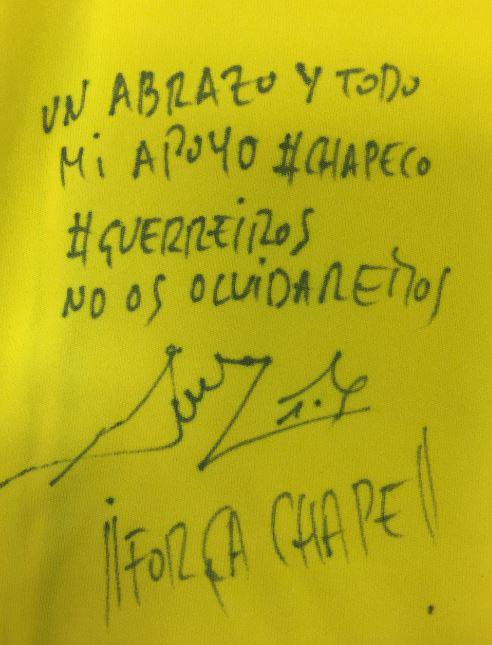 UN ABRAZO Y TODO
Mi APOYO #CHAPECO
#GUERREiROS
NO OS OLViDAREMOS
¡¡FORÇA CHAPE!!